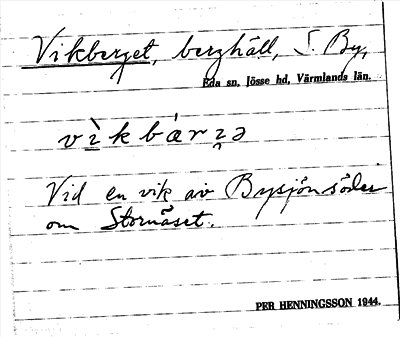 Vikberget, berghäll, S. By,
Eda sn, Jösse hd, Värmlands län.
vì̠kbá̛rʒ̣ə
Vid en vik av Bysjön söder
om Stornäset.
PER HENNINGSSON 1944.